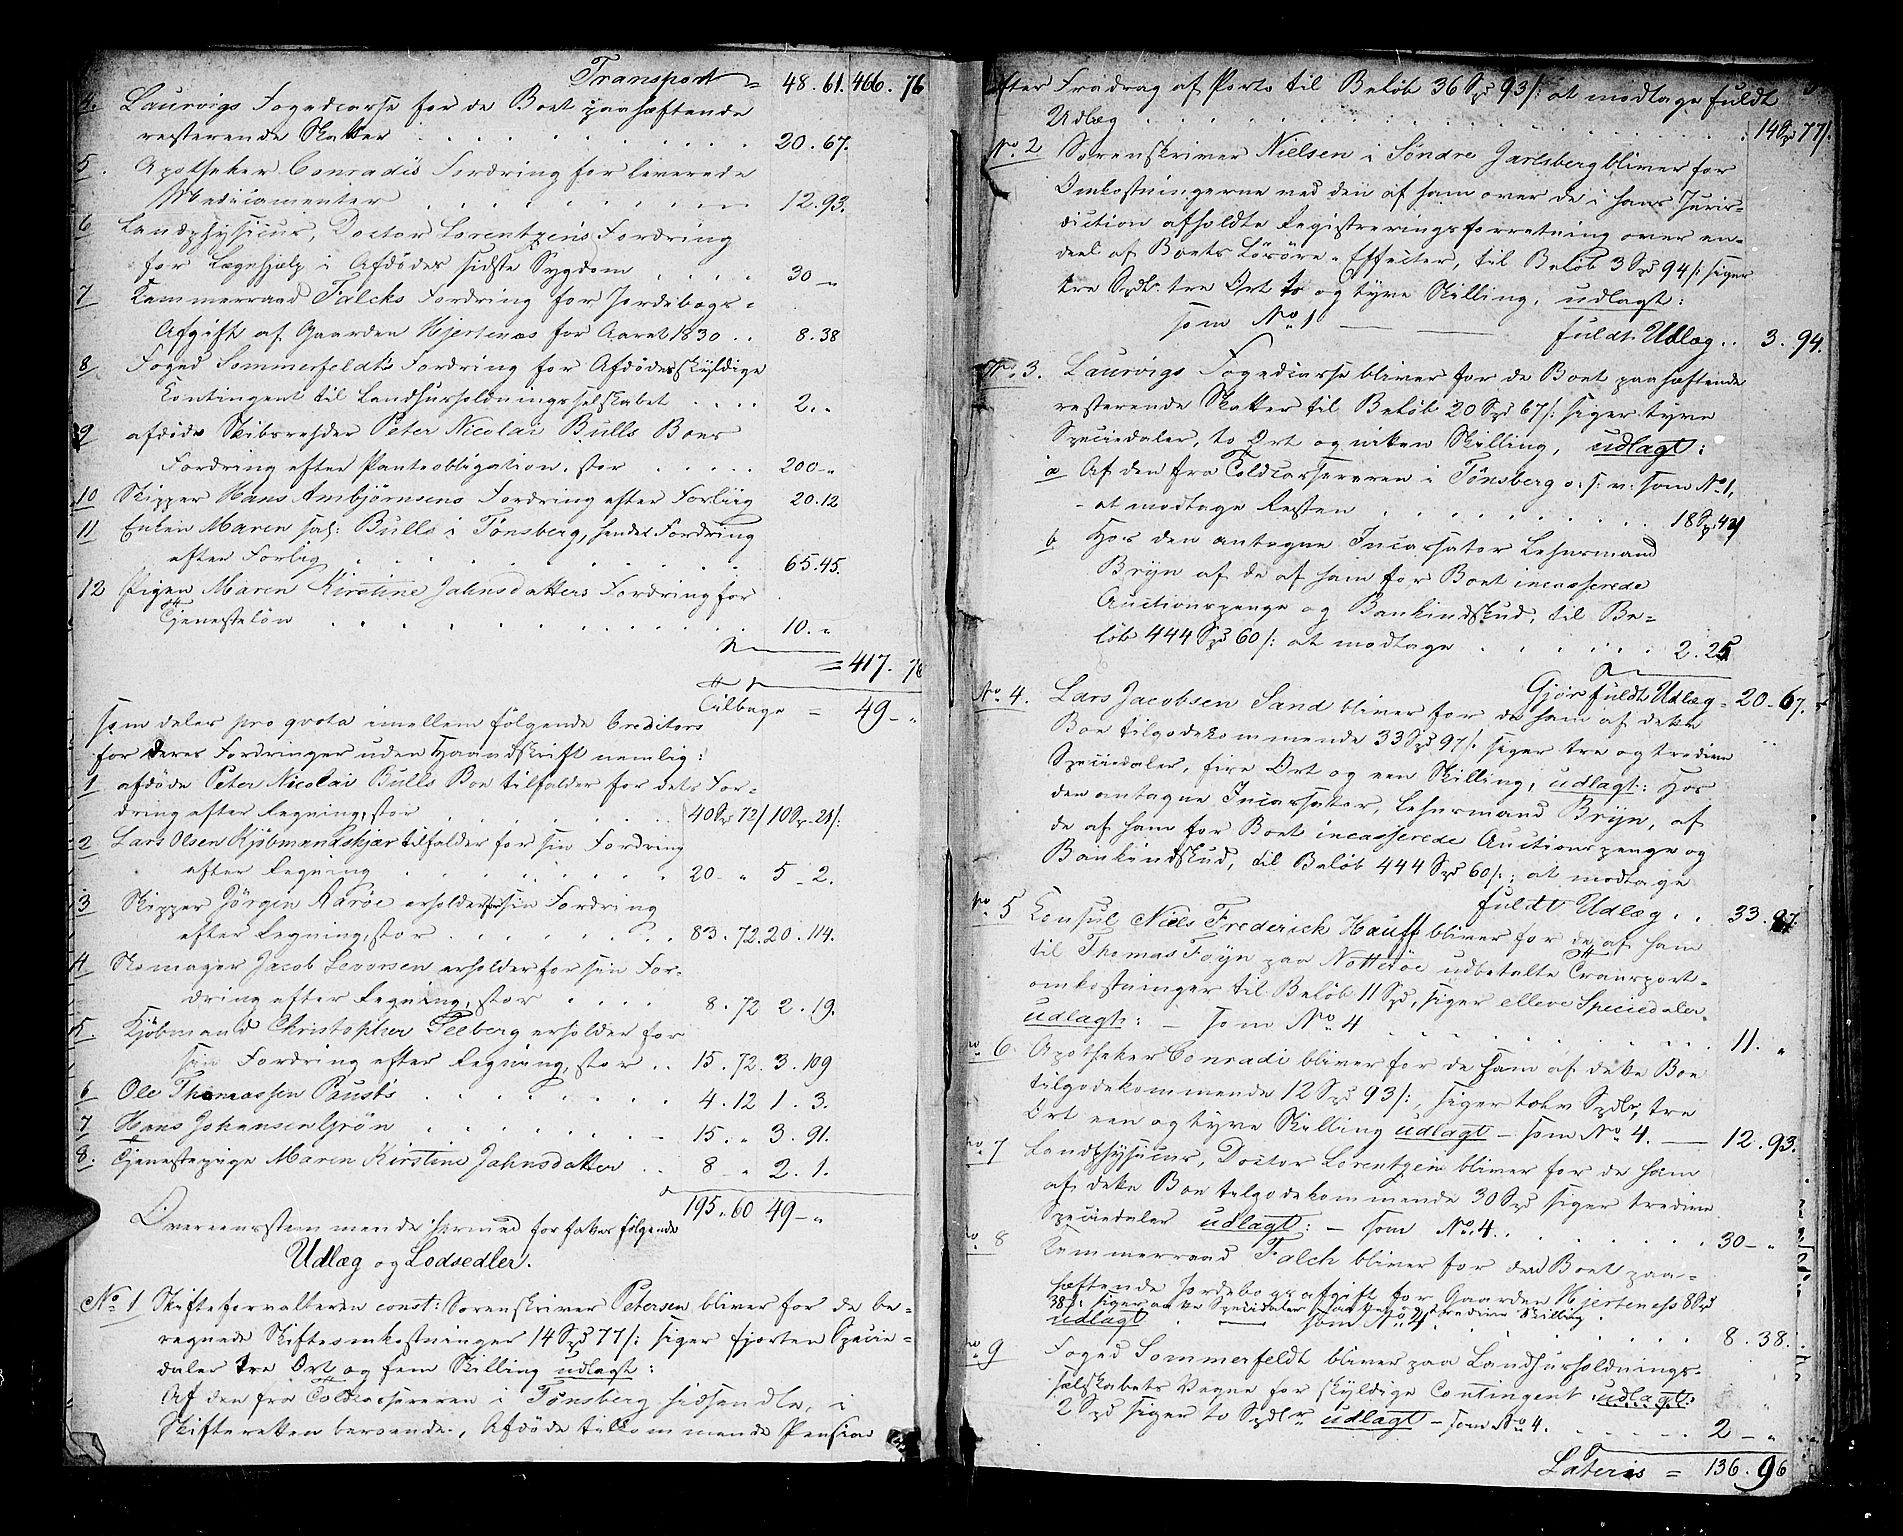 Transport = 48.61. 466.76
4. Laurvigs Fogedcasse for de Boet paaheftende
resterende Skatter . . . 20.67.
5. Apotheker Conradis Fordring for leverede
Medicamenter . . . 12.93.
6 Landphysicus, Doctor Lorentzens Fordring
for Lægehjelp i Afdødes sidste Sygdom . . . 30 -
7 Kammerraad Falcks Fordring for Jordebogs-
Afgift af Gaarden Hjertenæs for Aaret 1830 . . 8.38
8 Foged Sommerfeldts Fordring for Afdødes skyldige
Contingent til Landhuusholdningsselskabet . . . . 2. "
9 afdøde Skibsrehder Peter Nicolai Bulls Boes
Fordring efter Panteobligation, stor . . . . 200 - "
10 Skipper Hans Ambjörnsens Fordring efter Forliig 20.12
11 Enken Maren sal: Bulls i Tönsberg, hendes Fordring
efter Forlig . . . 65.45.
12 Pigen Maren Kirstine Jahnsdatters Fordring for
Tjenesteløn . . . 10. "
= 417. 76
Tilbage = 49 - "
som deles pro qvota imellem følgende Creditorer
for deres Fordringer uden Haandskrift nemlig:
1 afdøde Peter Nicolai Bulls Boe tilfalder for dets For-
dring efter Regning, stor . . . 40 Spd 72 /: 10 Spd 21 /:
2 Lars Olsen Kjöbmandskjær tilfalder for sin Fordring
efter Regning . . . 20 - " 5 - 2.
3 Skipper Jörgen Aaröe erholder for sin Fordring
efter Regning, stor . . . 83.72. 20.114.
4 Skomager Jacob Levorsen erholder for sin For-
dring efter Regning, stor . . . . 8.72 2.19.
5. Kjöbmand Christopher Seeberg erholder for
sin Fordring efter Regning, stor . . 15.72. 3.109
6 Ole Thomassen Pausts . . . 4.12 1.3.
7 Hans Johansen Grön . . . 15. " 3.91.
8. Tjenestepige Maren Kirstine Jahnsdatter . . 8 - " 2.1.
195.60 49 - "
Overeensstemmende hermed forfattes følgende
Udlæg og Lodsedler.
No 1 Skifteforvalteren const: Sorenskriver Petersen bliver for de be-
regnede Skifteomkostninger 14 Spd 77 /: siger fjorten Specie-
daler tre Ort og fem Skilling udlagt:
Af den fra Toldcassereren i Tönsberg hidsendte, i
Skifteretten beroende, Afdøde tilkommende Pension
efter Fradrag af Porto til Beløb 36 Spd 93 /: at modtage fuldt
Udlæg . . . 14 Spd 77 /:
No. 2. Sorenskriver Nielsen i Söndre Jarlsberg bliver for
Omkostningerne ved den af ham over de i hans Juris-
diction afholdte Registreringsforretning over en-
deel af Boets Løsøre-Effecter, til Beløb 3 Spd 94 /: siger
tre Spdlr. tre Ort og tyve Skilling, udlagt:
som No 1 — — fuldt Udlæg . . 3.94.
No. 3. Laurvigs Fogedcasse bliver for de Boet paaheftende
resterende Skatter til Beløb 20 Spd 67 /: siger tyve
Speciedaler, to Ort og nitten Skilling, udlagt:
a Af den fra Toldcassereren i Tönsberg o: s: v: som No 1,
at modtage Resten . . . 18 Sp. 42 /
b Hos den antagne Incassator Lehnsmand
Bryn af de af ham for Boet incasserede
Auctionspenge og Bankindskud, til Be-
løb 444 Spd 60 /: at modtage . . . 2.25
Gjör fuldt Udlæg = 20 - 67.
No. 4. Lars Jacobsen Sand bliver for de ham af dette
Boe tilgodekommende 33 Spd 97 /: siger tre og tredive
Speciedaler, fire Ort og een Skilling, udlagt: Hos
den antagne Incassator, Lehnsmand Bryn, af
de af ham for Boet incasserede Auctionspenge og
Bankindskud, til Beløb 444 Spd 60 /: at modtage
fuldt Udlæg . . 33.97.
No. 5 Consul Niels Frederich Hauff bliver for de af ham
til Thomas Foyn paa Nötteröe udbetalte Transport-
omkostninger til Beløb 11 Spd, siger elleve Speciedaler
udlagt: — som No. 4 . . . 11. "
No 6. Apotheker Conradi bliver for de ham af dette Boe
tilgodekommende 12 Spd 93 /:, siger tolv Spdlr, tre
Ort een og tyve Skilling udlagt — som No 4. — 12.93.
No 7 Landphysicus, Doctor Lorentzen bliver for de ham
af dette Boe tilgodekommende 30 Spd siger tredive
Speciedaler udlagt: — som No. 4. . . . 30 - "
No 8 Kammerraad Falch bliver for den Boet paa-
heftende Jordebogsafgift for Gaarden Hjertenæss 8 Spd
38 /: siger otte Speciedaler een Ort og fjorten Skilling
udlagt — som No 4 . . . 8.38.
No 9 Foged Sommerfeldt bliver paa Landhuusholdnings-
selskabets Vegne for skyldige Contingent udlagt:
2 Spd siger to Spdlr udlagt — som No 4. . . . 2 - "
Lateris = 136.96